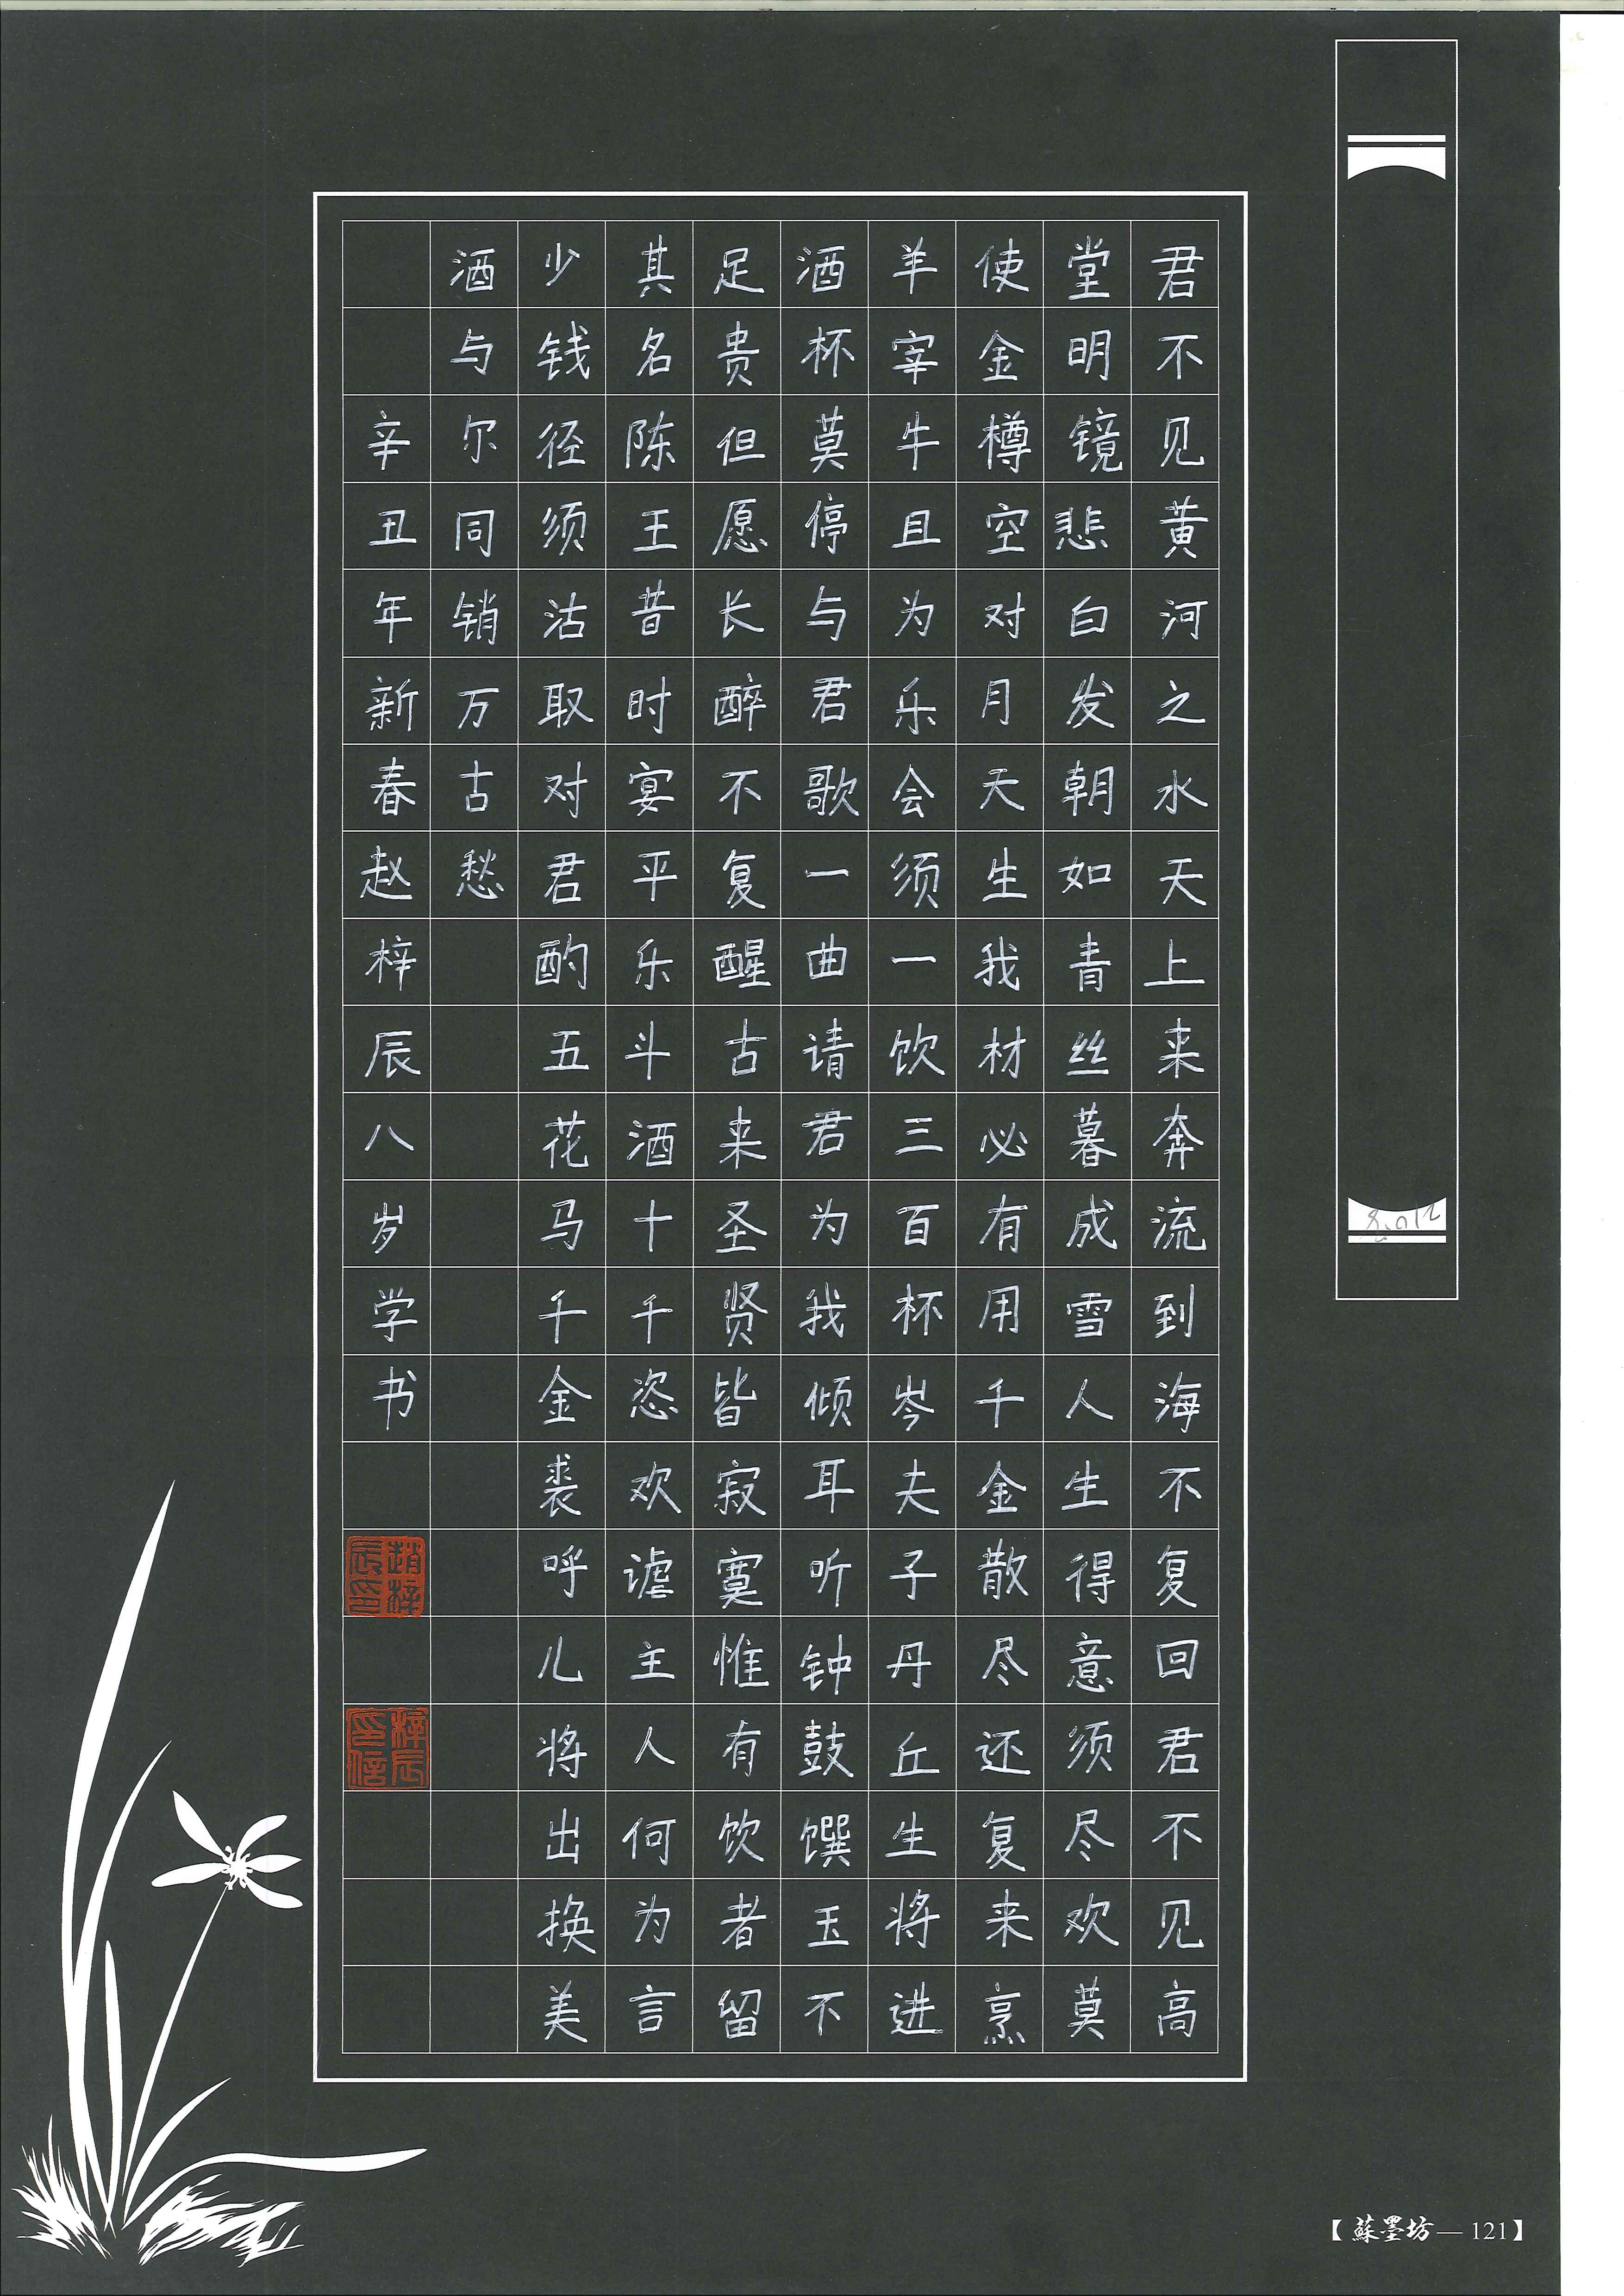 君不见黄河之水天上来奔流到海不复回君不见高
堂明镜悲白发朝如青丝暮成雪人生得意须尽欢莫
使金樽空对月天生我材必有用千金散尽还复来烹
羊宰牛且为乐会须一饮三百杯岑夫子丹丘生将进
酒杯莫停与君歌一曲请君为我倾耳听钟鼓馔玉不
足贵但愿长醉不复醒古来圣贤皆寂寞惟有饮者留
其名陈王昔时宴平乐斗酒十千恣欢谑主人何为言
少钱径须沽取对君酌五花马千金裘呼儿将出换美
酒与尔同销万古愁
辛丑年新春赵梓辰八岁学书
趙梓辰印
梓辰印信
【蘇墨坊—121】